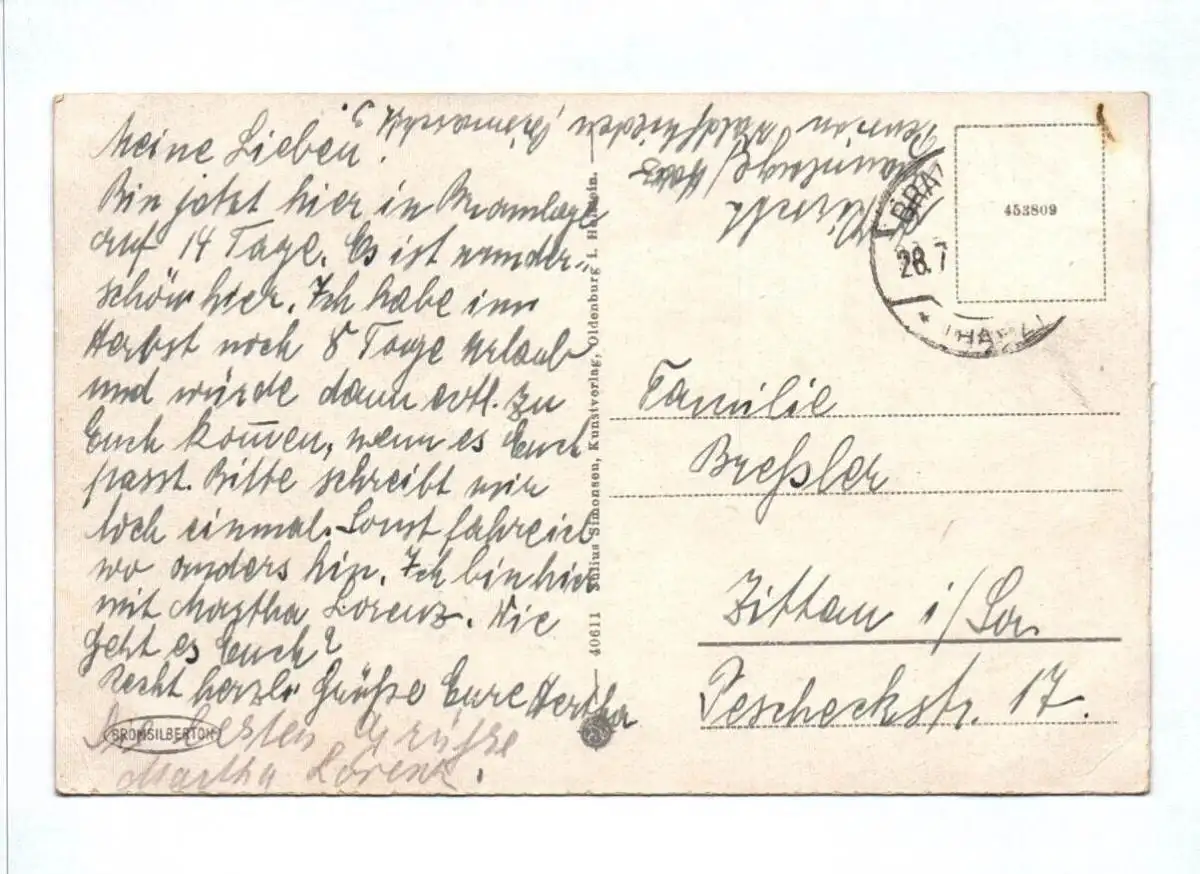 Meine Lieben!
Bin jetzt hier in Braunlage
auf 14 Tage. Es ist wunder-
schön hier. Ich habe im
Herbst noch 8 Tage Urlaub
und würde dann evtl. zu
Euch kommen, wenn es Euch
passt. Bitte schreibt mir
doch einmal. Sonst fahre ich
wo anders hin. Ich bin hier
mit Martha Lorenz. Wie
geht es Euch?
Recht herzl. Grüße Eure Hertha
Die besten Grüße
Martha Lorenz.
BROMSILBERTON
40611 Julius Simonsen, Kunstverlag, Oldenburg i. Holstein.
Braunlage / Harz
Pension Waldfrieden
453809
BRA
28.7
(HARZ)
Familie
Breßler
Zittau i/Sa.
Pescheckstr. 17.